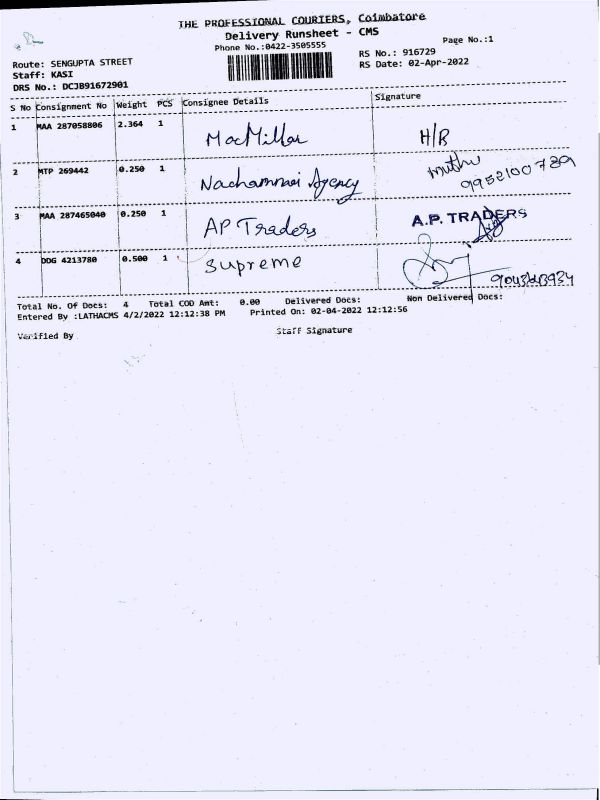 THE PROFESSIONAL COURIERS, Coimbatore
Delivery Runsheet - CMS
Phone No.:0422-3505555
Page No.:1
Route: SENGUPTA STREET
Staff: KASI
DRS No.: DCJB91672901
RS No.: 916729
RS Date: 02-Apr-2022
S No Consignment No Weight PCS Consignee Details Signature
1 MAA 287058806 2.364 1 MacMillan H/R
2 MTP 269442 0.250 1 Nachammai Agency Muthu 9952100789
3 MAA 287465040 0.250 1 AP Traders A.P. TRADERS
4 DDG 4213780 0.500 1 Supreme
Total No. Of Docs: 4 Total COD Amt: 0.00 Delivered Docs: Non Delivered Docs:
Entered By :LATHACMS 4/2/2022 12:12:38 PM Printed On: 02-04-2022 12:12:56
Verified By Staff Signature